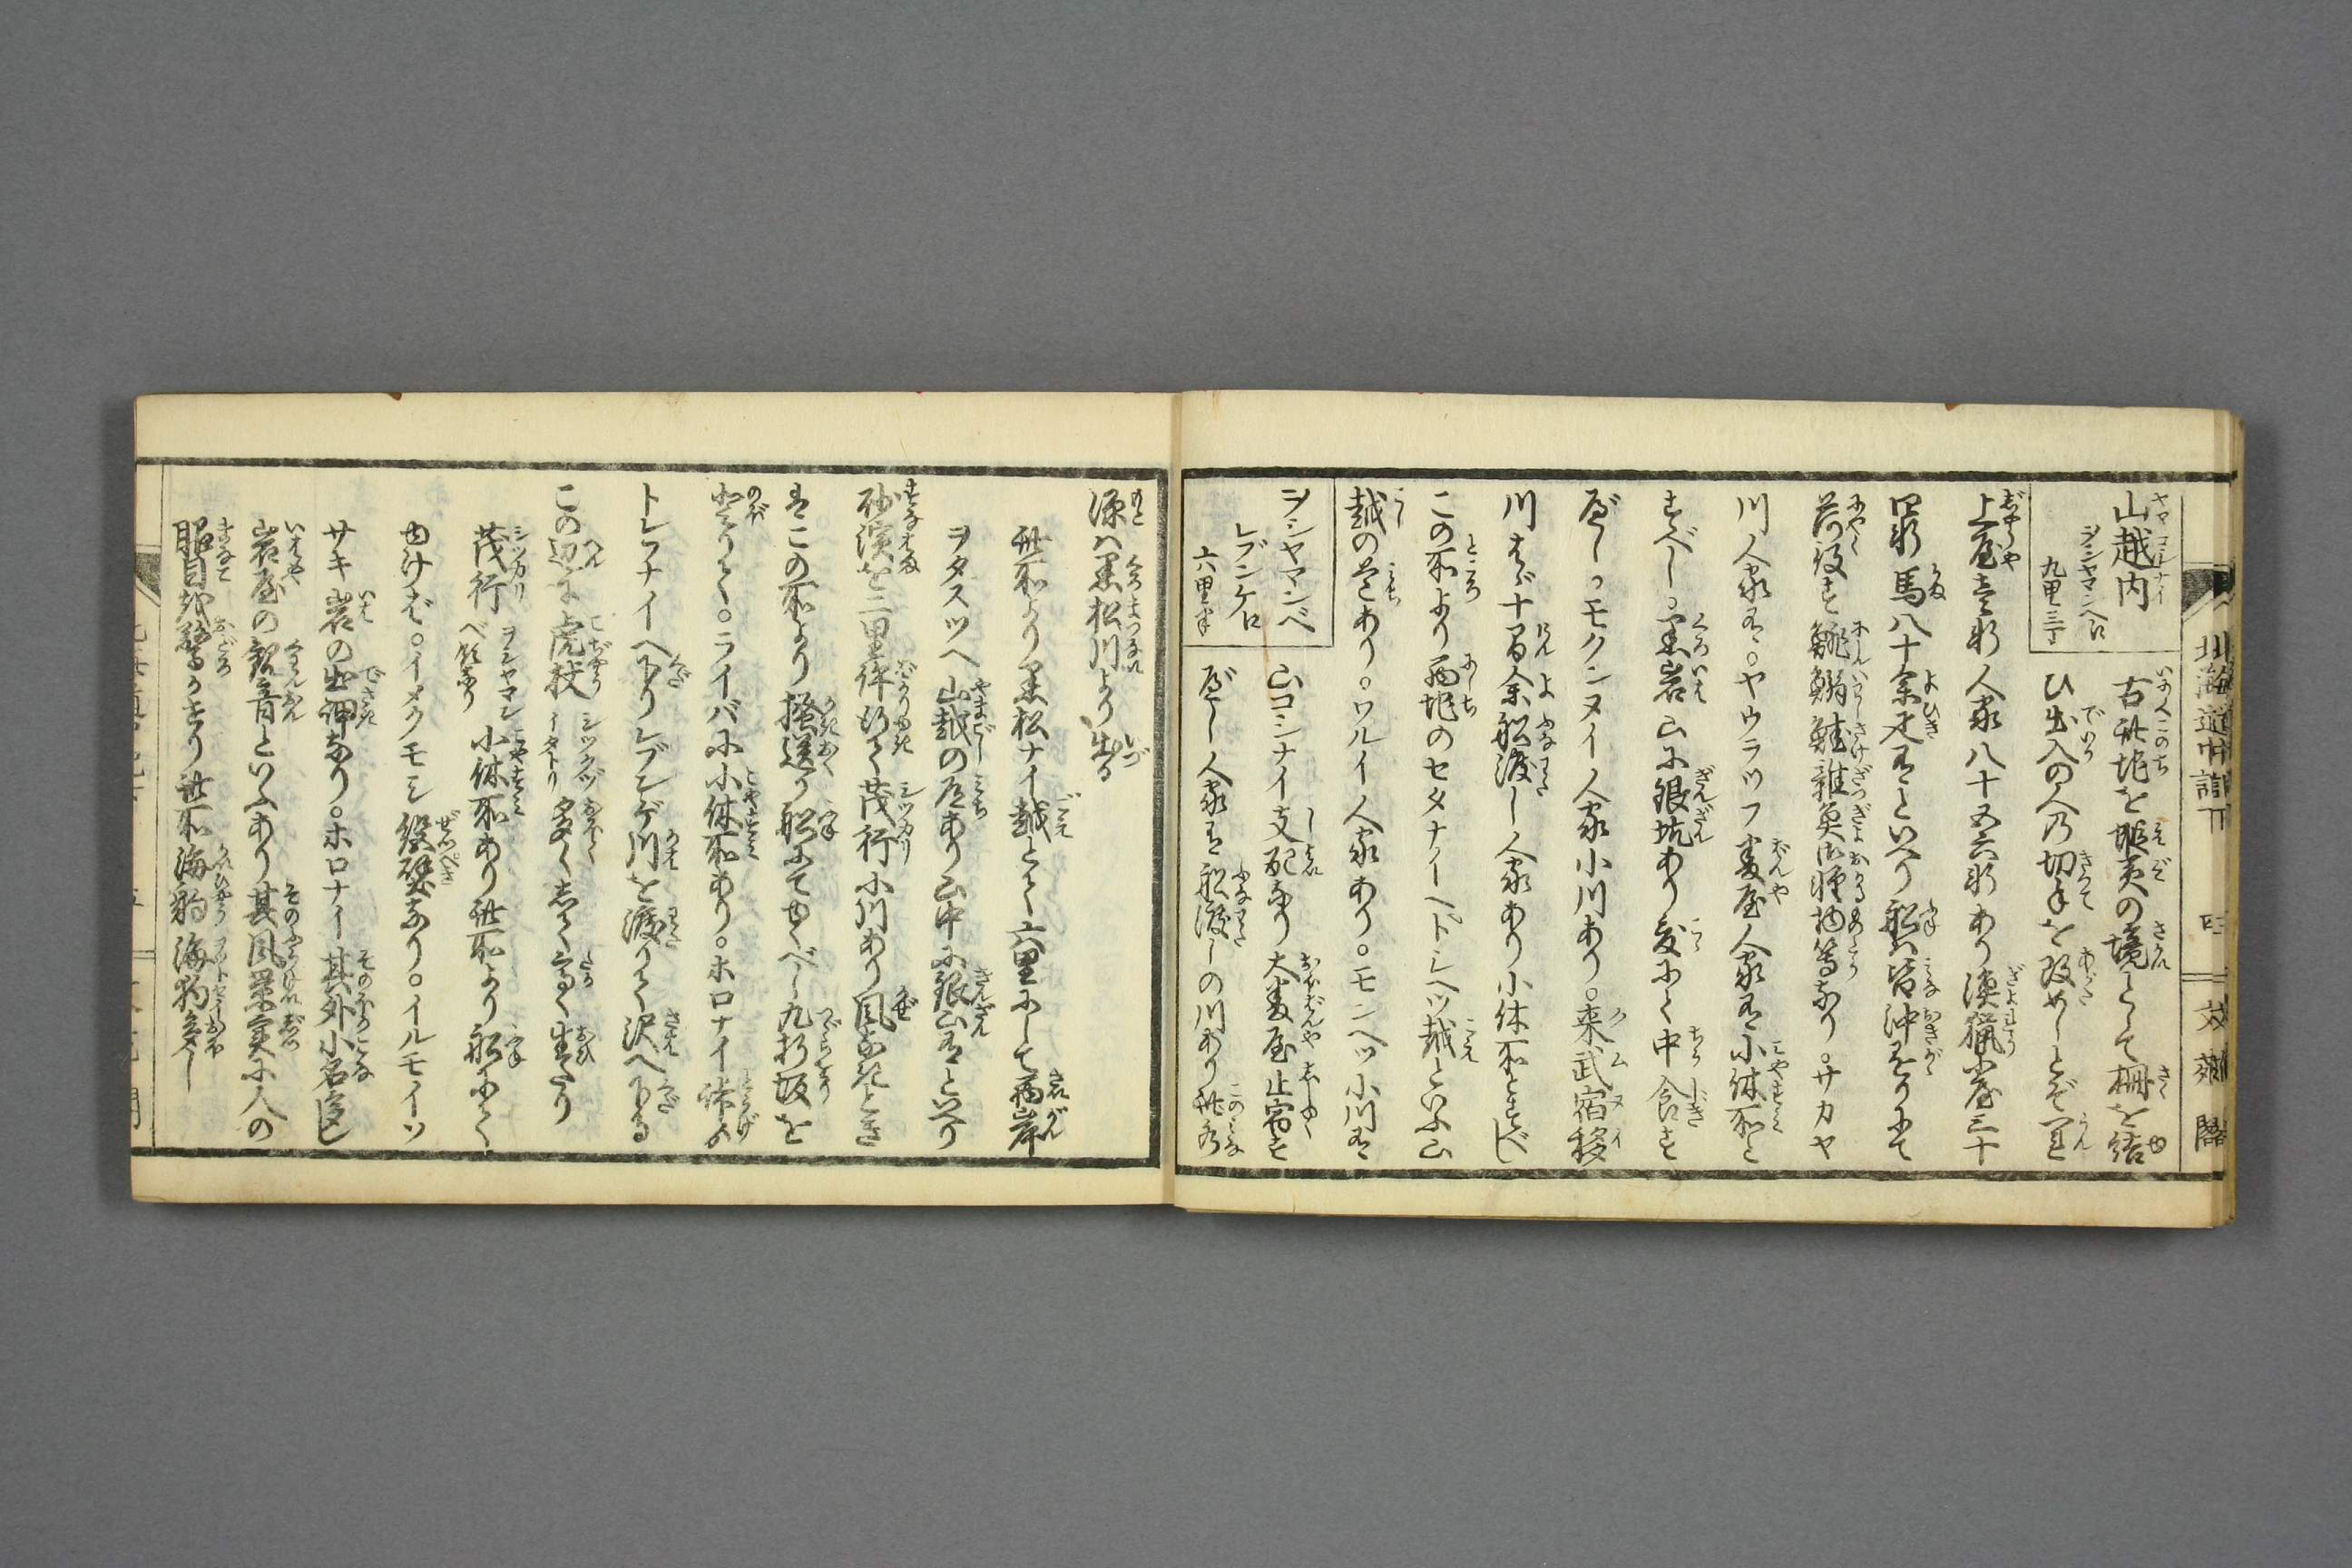 北海道中記下 四 文苑閣
山越内 古此地を蝦夷の境として柵を結
ヲシヤマンヘ江
九里三丁
ひ出入の人乃切手を改めしとぞ
上屋壱軒人家八十五六軒あり漁猟小屋三十
四軒馬八十余疋有といへり船ハ皆沖
荷役す 鰊鰯鮭雑魚 等なり。サカヤ
川人家有。ヤウラツフ 屋人家有小休所と
すべし。黒岩山に銀坑あり爰にて中食す
べし。モクンヌイ人家小川あり。来武宿移
川はゞ十間余船渡し人家あり小休所とすべし
この所より西地のセタナイヘトシヘツ越といふ山
越の道あり。ワルイ人家あり。モンヘツ小川有
ヲシヤマンベ 山コシナイ支配なり 止宿す
レブンケ江
六里半
べし人家有船渡しの川あり此水
源ハ黒松川より出る
此所より黒松ナイ越とて六里にして西岸
ヲタスツヘ山越の道あり山中に銀山有といへり
砂濱を二里許行て茂行小川あり風なきとき
はこの所より掻送り船にてゆくべし九折坂を
登りて。ライバに小休所あり。ホロナイ峠よ
トレフナイへ下りレブンゲ川を渡りて沢へ下る
この辺に虎杖 多く 高く生たり
茂行 ヲシヤマンベ 領なり 小休所あり此所より船にて
ゆけば。イメクモシ絶壁なり。イルモイツ
サキ岩の出岬なり。ホロナイ其外小名多し
岩屋の観音といふあり其風景実に人の
眼目を驚かせり此所海豹海狗多し